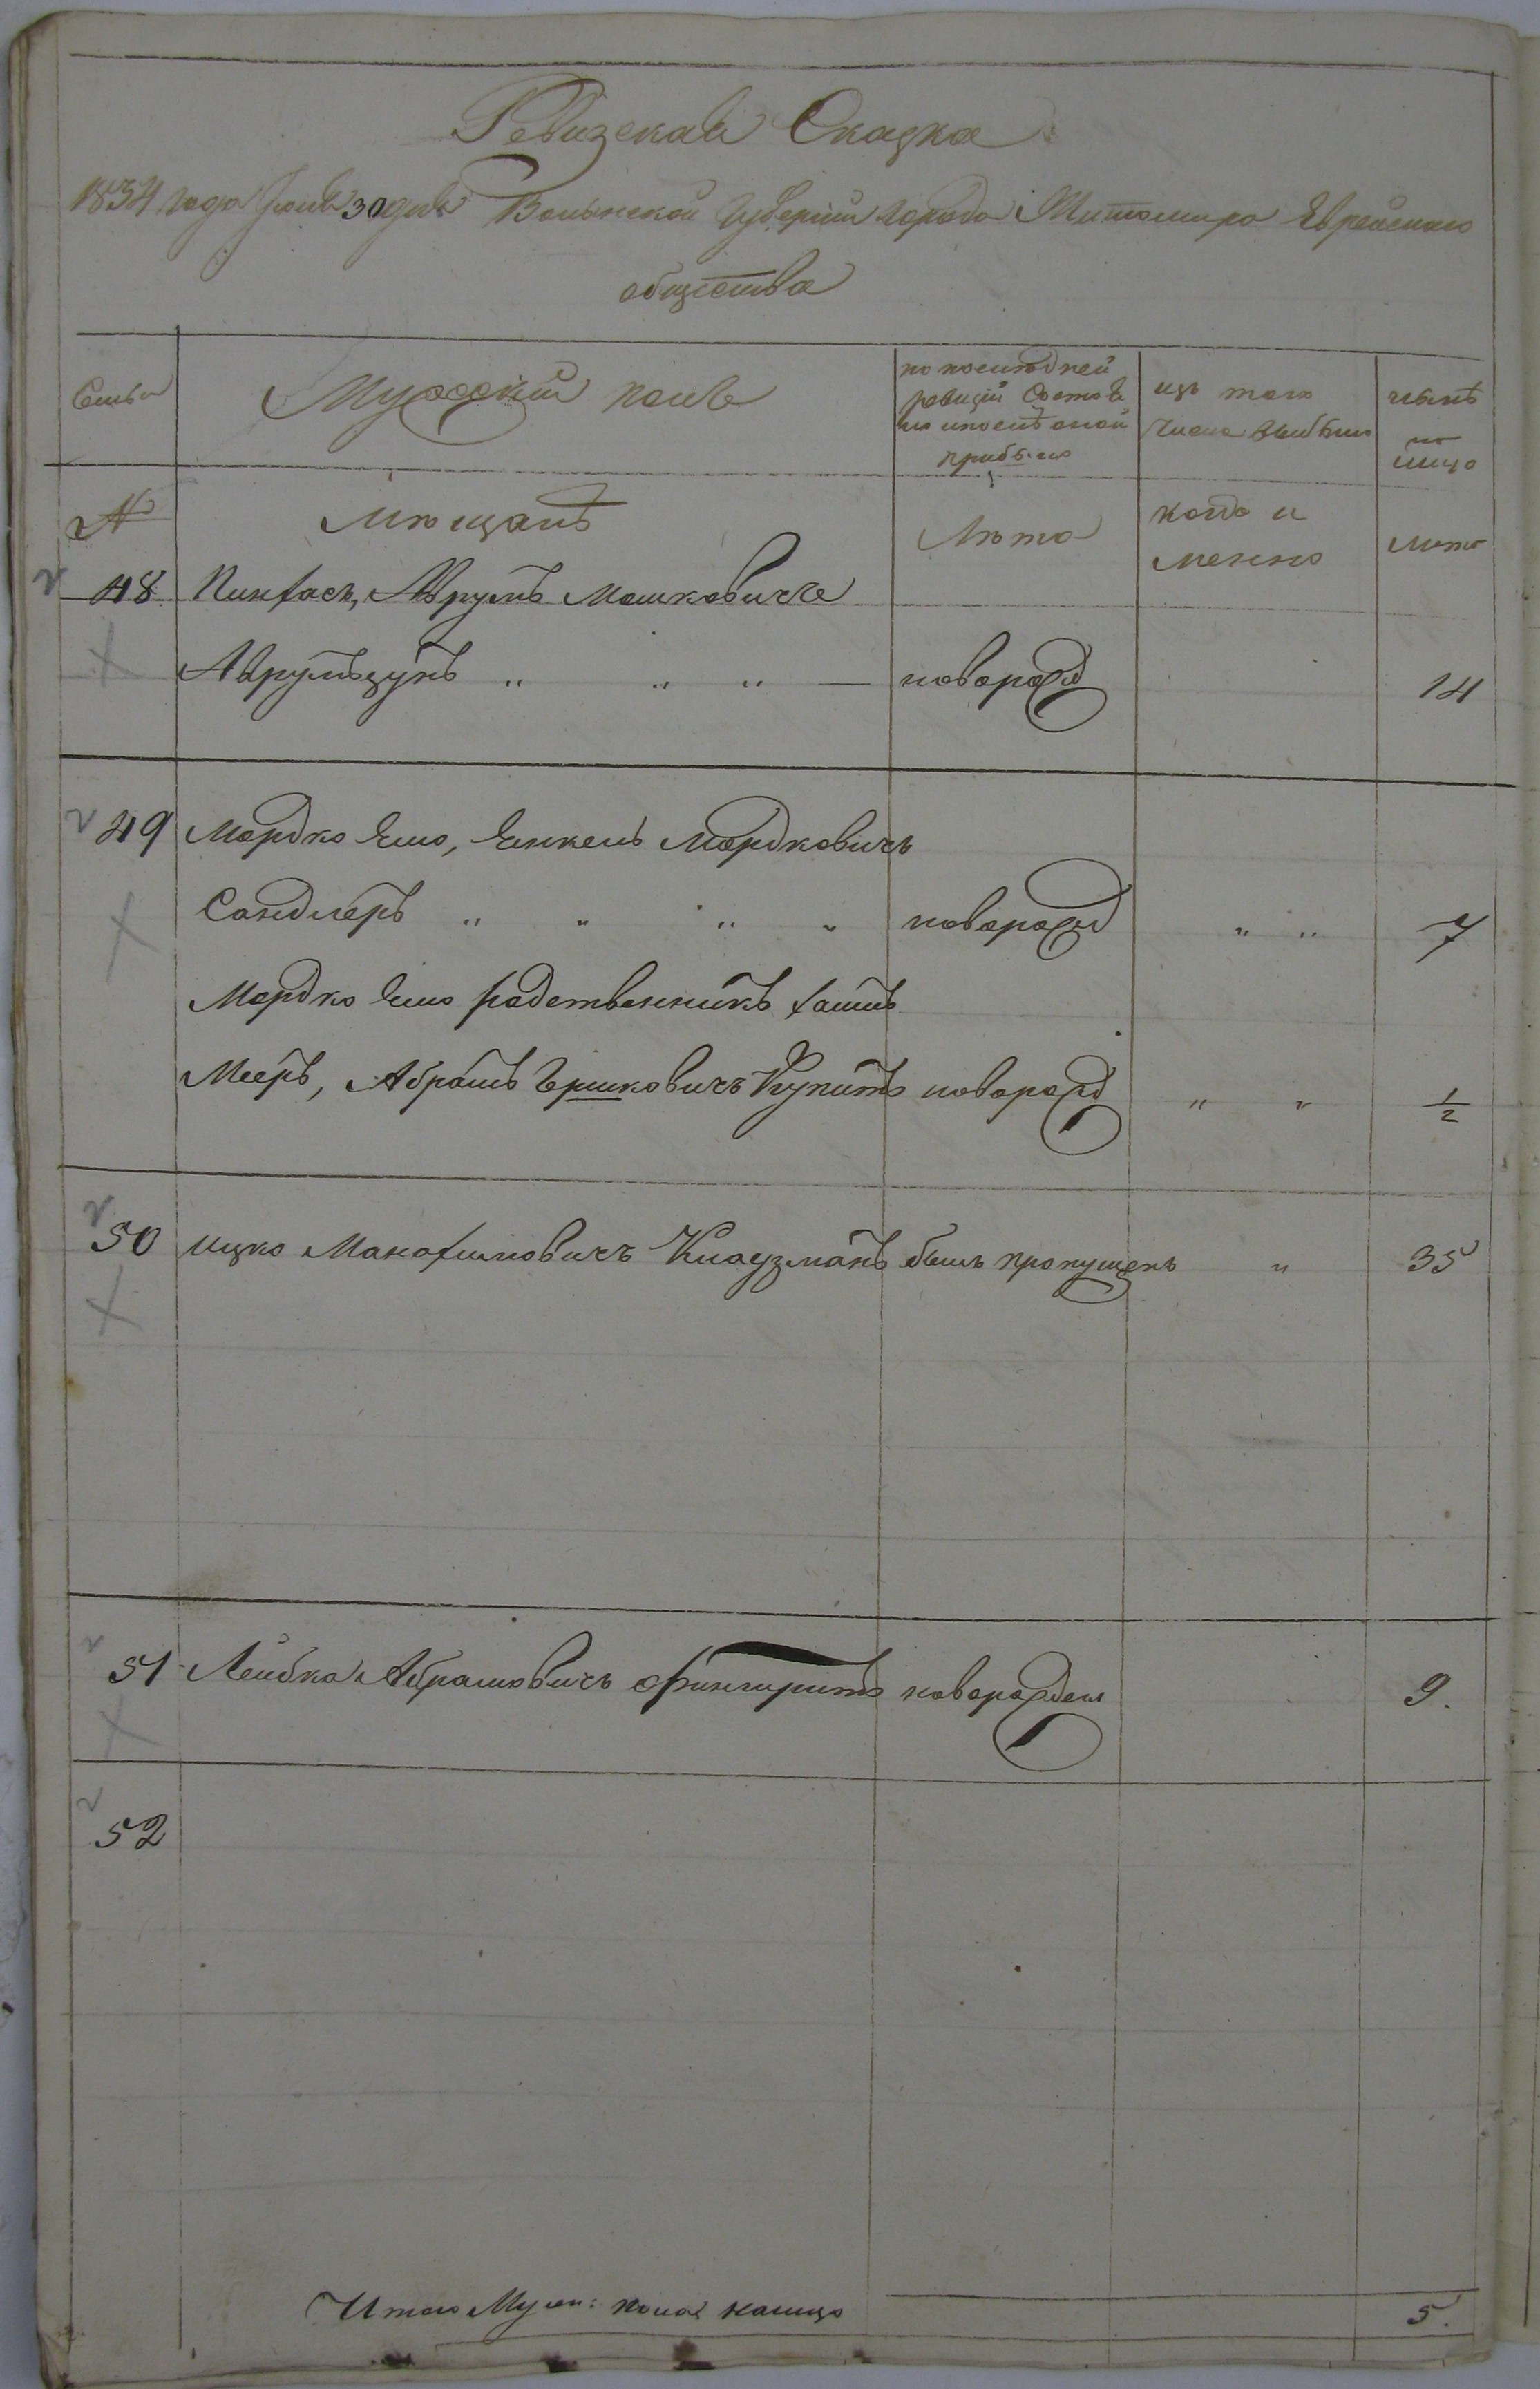 Ревизская Сказка
1834 года Июня 30 дня Волынской Губерніи города Житомира Еврейского
общества
Семьи
Мужескій полъ
по последней
ревизіи состояло
и после оной
прибыло
изъ того
числа выбыло
нынѣ
на
лицо
№
Мѣщанъ
Лѣта
когда и
менно
лѣта
48 Пинхасъ, Аврумъ Мошковичъ
Аврумъзунъ " " " — новорожд 14
49 Мордко Ешо, Янкель Мордковичъ
Сандлеръ " " " " новорожд " " 7
Мордко Ешо родственникъ
Мееръ, Абрамъ Гершковичъ Купитъ новорожд " " 1/2
50 Ицко Манохимовичъ Клаузманъ былъ пропущенъ " 35
51 Лейбка Абрамовичъ новорожден 9.
52
Итого Муж: пола налицо 5.